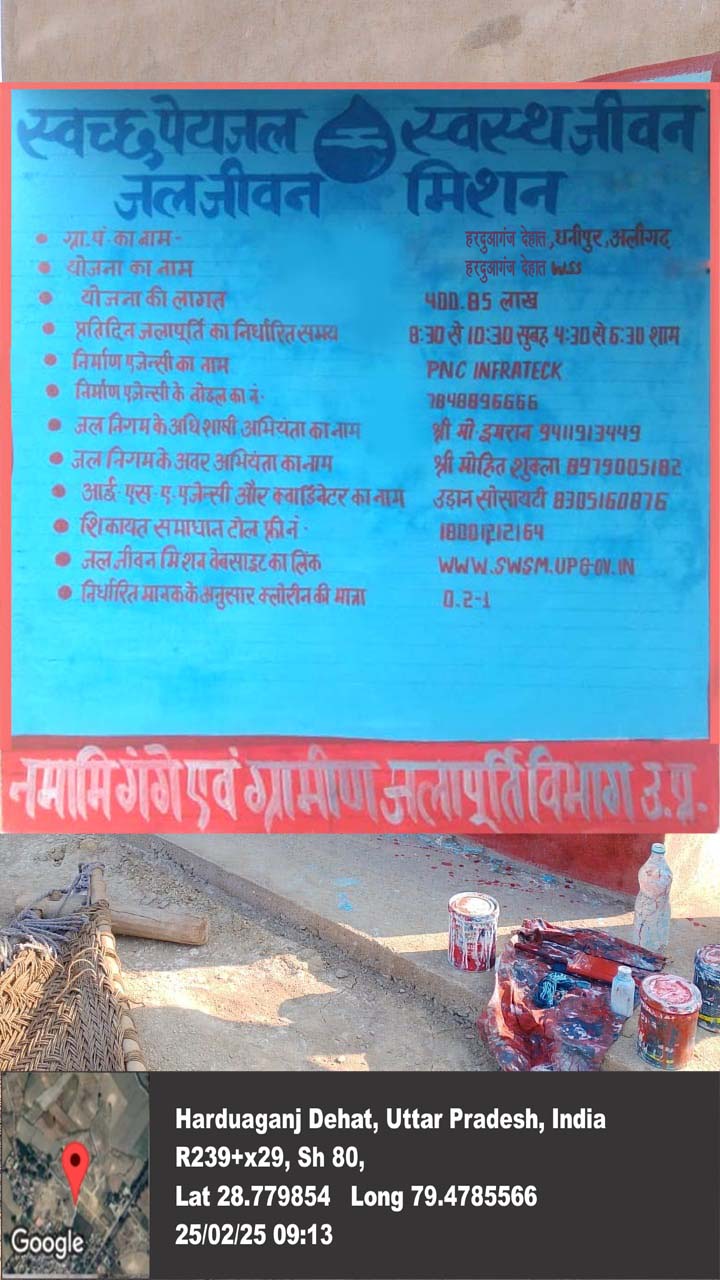 स्वच्छ पेयजल स्वस्थ जीवन
जल जीवन मिशन
ग्रा. पं. का नाम - हरदुआगंज देहात, धनीपुर, अलीगढ़
योजना का नाम हरदुआगंज देहात WSS
योजना की लागत 400.85 लाख
प्रतिदिन जलापूर्ति का निर्धारित समय 8:30 से 10:30 सुबह 4:30 से 6:30 शाम
निर्माण एजेन्सी का नाम PNC INFRATECK
निर्माण एजेन्सी के नोडल का नं. 7848896666
जल निगम के अधिशाषी अभियंता का नाम श्री मो इमरान 9411913449
जल निगम के अवर अभियंता का नाम श्री मोहित शुक्ला 8979005182
आई. एस. ए. एजेन्सी और क्वार्डिनेटर का नाम उड़ान सोसायटी 8305160876
शिकायत समाधान टोल फ्री नं. 18001212164
जल जीवन मिशन वेबसाइट का लिंक WWW.SWSM.UPGOV.IN
निर्धारित मानक के अनुसार क्लोरीन की मात्रा 0.2-1
नमामि गंगे एवं ग्रामीण जलापूर्ति विभाग उ.प्र.
Harduaganj Dehat, Uttar Pradesh, India
R239+x29, Sh 80,
Lat 28.779854 Long 79.4785566
25/02/25 09:13
Google